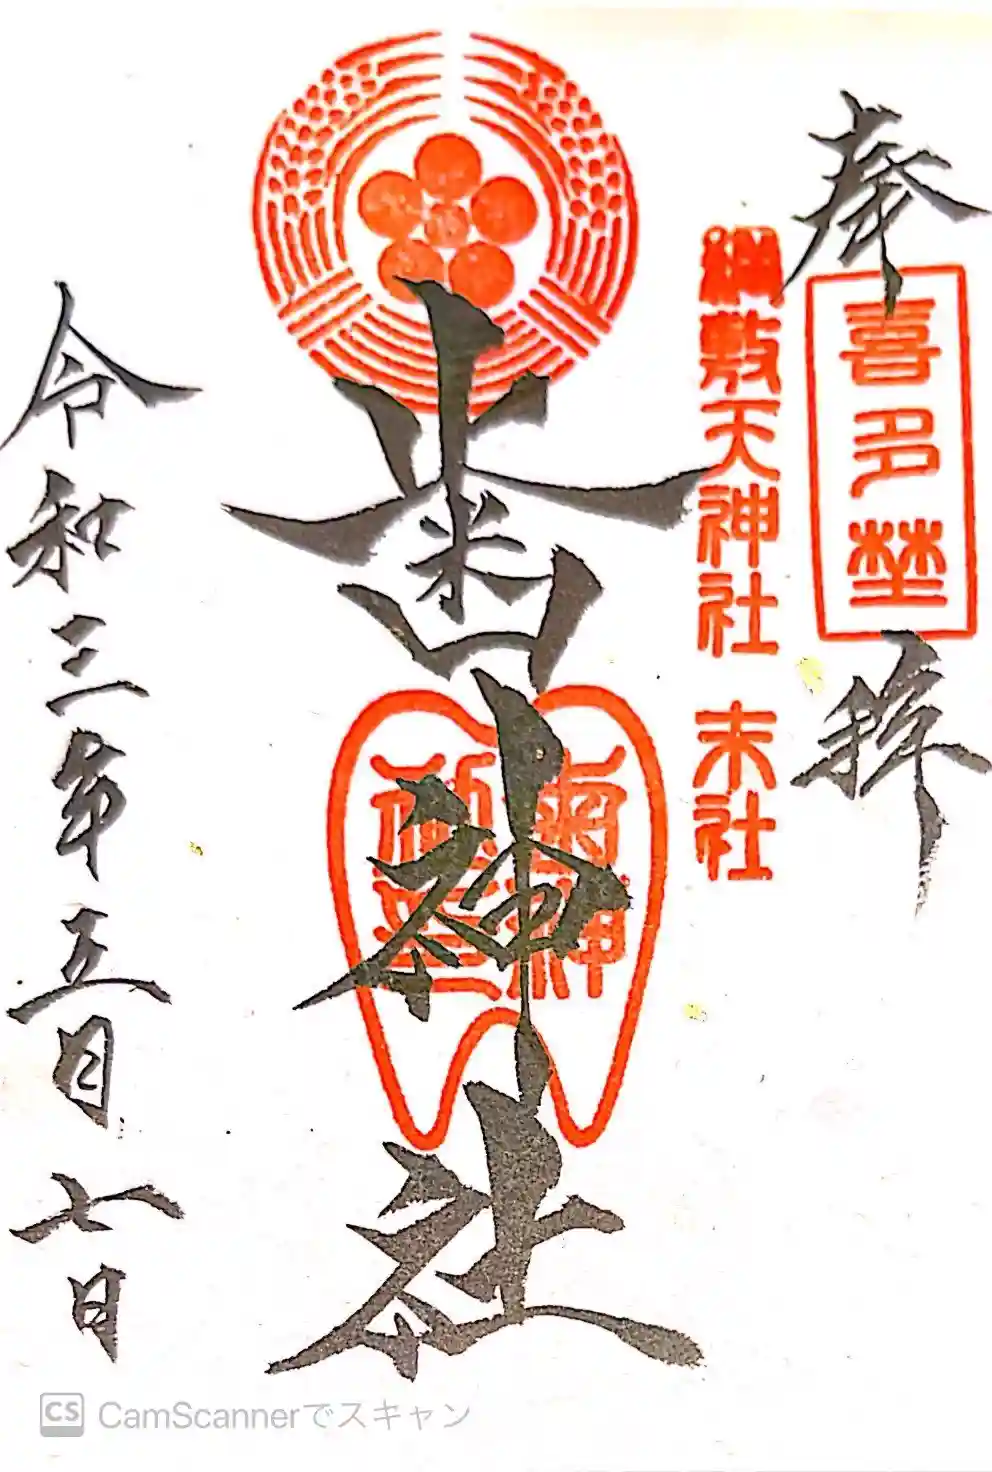 奉拝
喜多埜
綱敷天神社 末社
歯神社
歯神
令和三年五月七日
CS CamScannerでスキャン